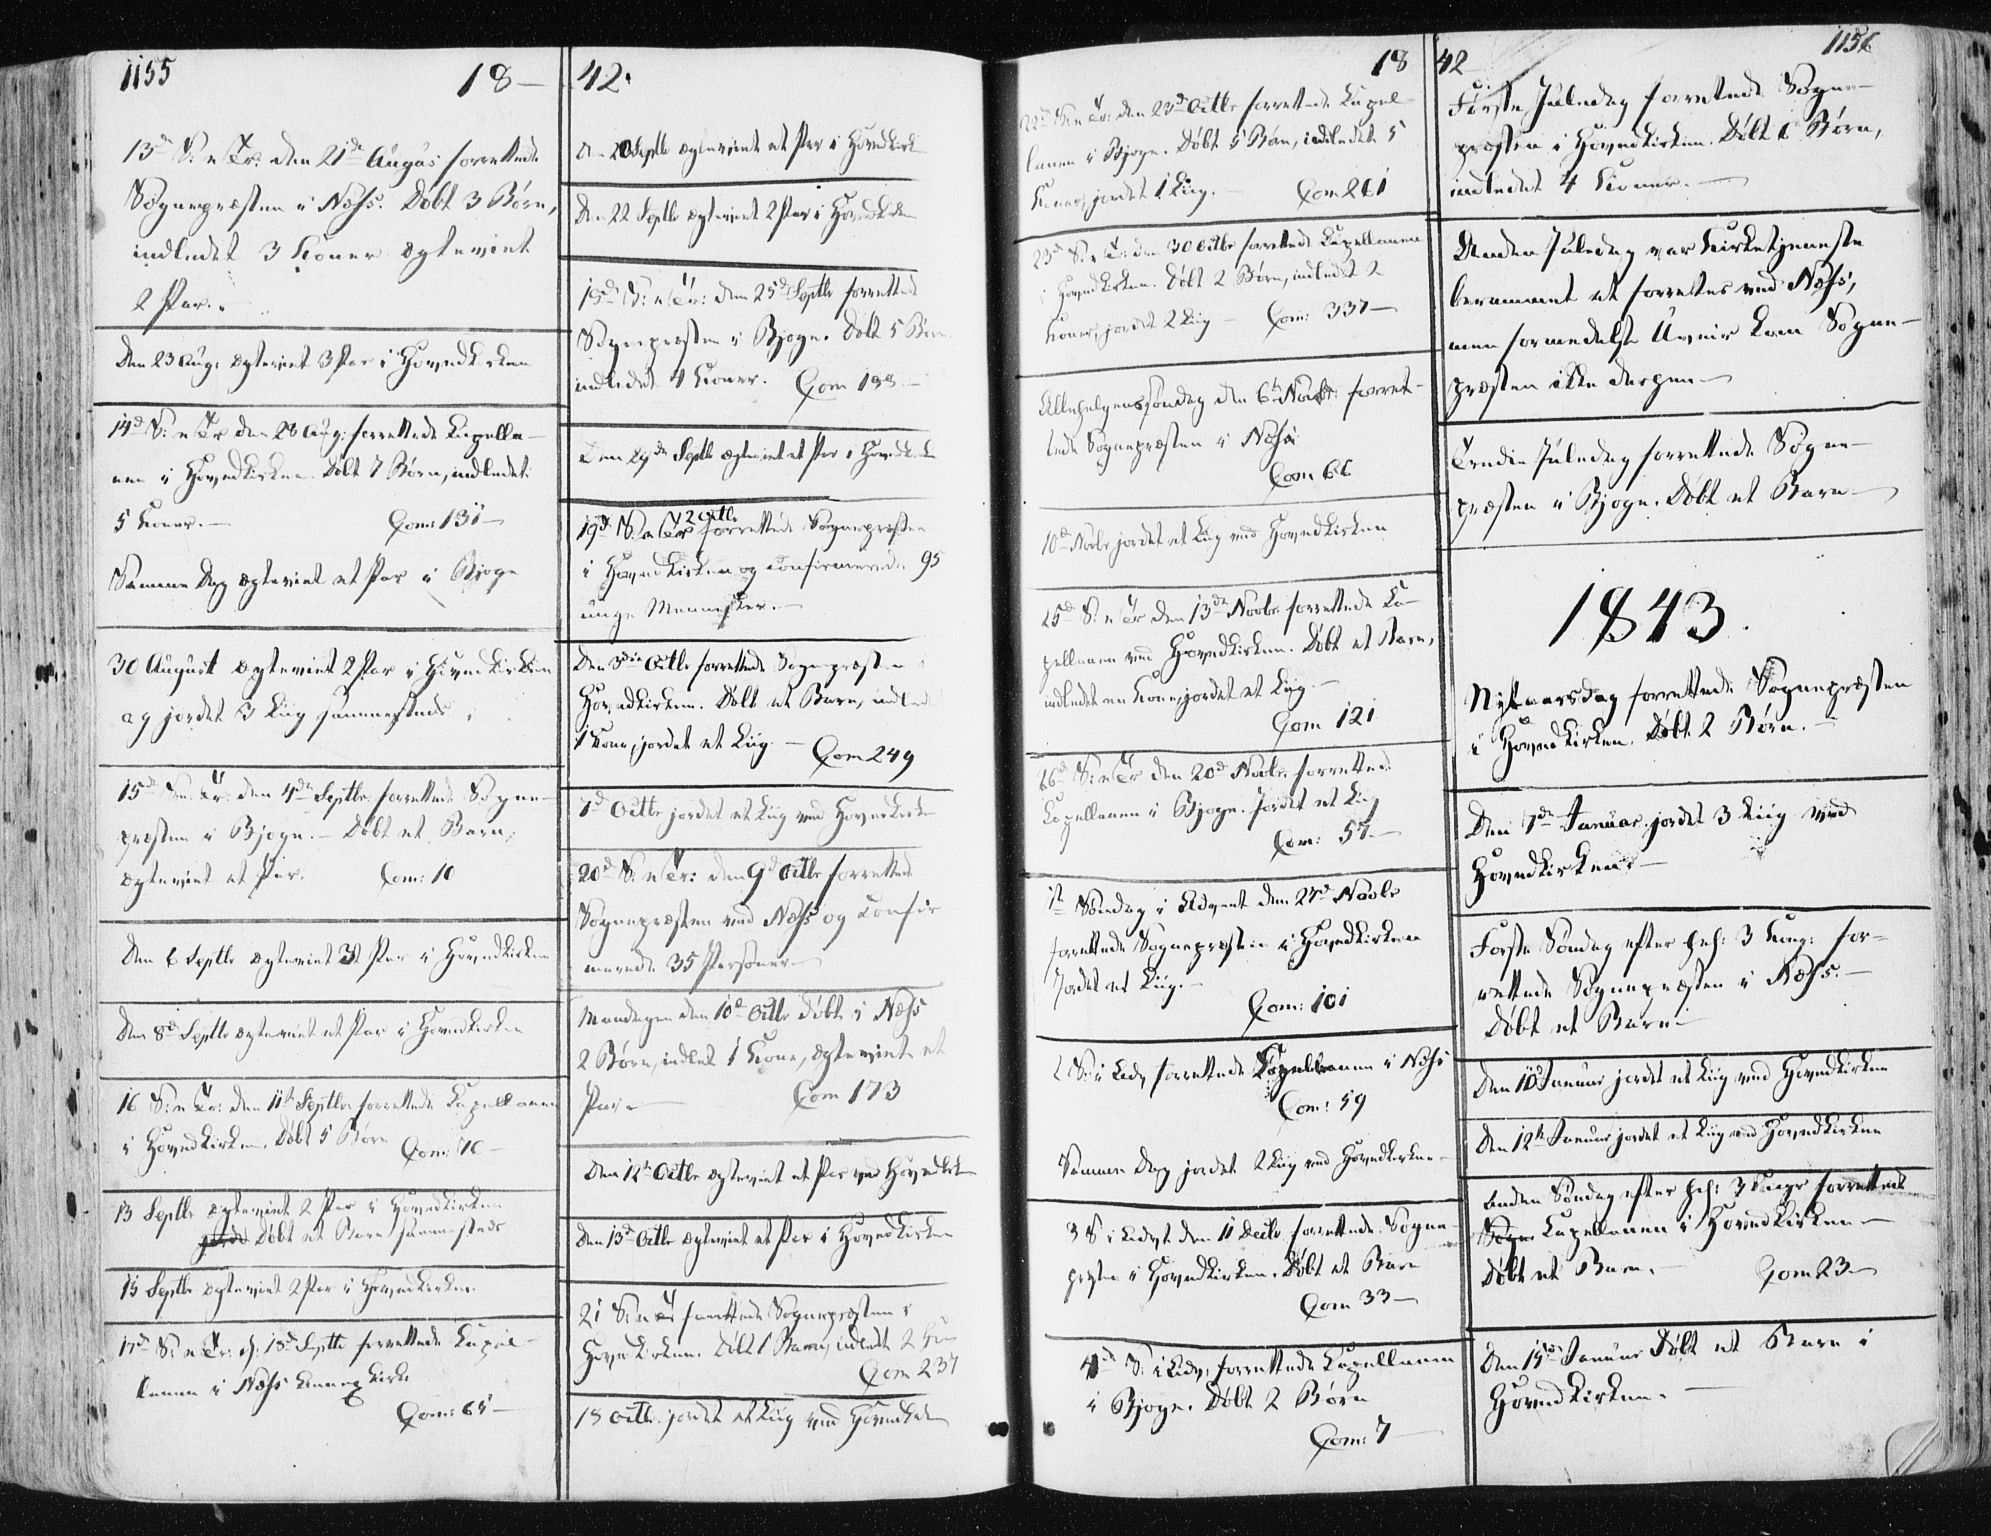 1155
18 —
13d S: n Tr: den 21de Augus forrettede
Sognepræsten i Næss. Døbt 3 Børn,
indledet 3 Koner ægteviet
2 Par.
Den 23 Aug: ægteviet 3 Par i Hovedkirken
14d S: n Tr den 28 Aug: forrettede Capella-
nen i Hovedkirken. Døbt 7 Børn, indledet
5 Koner. — Com: 131 —
Samme Dag ægteviet et Par i Bjogn
30 August ægteviet 2 Par i Hovedkirken
og jordet 3 Liig sammesteds
15d S: n Tr: den 4de Septbr: forrettede Sogne-
præsten i Bjogn. — Døbt et Barn,
ægteviet et Par. Com: 10
Den 6 Septbr ægteviet 3 Par i Hovedkirken
Den 8d Septbr ægteviet et Par i Hovedkirken
16 S: n Tr: den 11te Septbr forrettede Capellanen
i Hovedkirken. Døbt 5 Børn Com: 70 —
13 Septbr ægteviet 2 Par i Hovedkirken
Døbt et Barn sammesteds
15 Septbr ægteviet 2 Par i Hovedkirken
17d S: n Tr: d: 18d Septbr forrettede Capel-
lanen i Næss Kirke
Com: 65 —
42.
Den 20 Septbr ægteviet et Par i Hovedkirk
Den 22 Septbr ægteviet 2 Par i Hovedkirken
18d S: n Tr: den 25d Septbr forrettede
Sognepræsten i Bjogn. Døbt 5 Børn
indledet 4 Koner. Com 188 —
Den 29de Septbr ægteviet et Par i Hovedkirken
19d S. n Tr 2 Octbr forrettede Sognepræsten
i Hovedkirken og confirmerede 95
unge Mennesker. —
Den 3die Octbr forrettede Sognepræsten i
Hovedkirken. Døbt et Barn, indled
1 Kone, jordet et Liig. — Com 249
7d Octbr jordet et Liig ved Hovedkirken
20d S: n Tr: den 9d Octbr forrettede
Sognepræsten ved Næss og confir
merede 35 Personer —
Mandagen den 10d Octbr døbt i Næss
2 Børn, indlet 1 Kone, ægteviet et
Par — Com 173
Den 12te Octbr ægteviet et Par ved Hovedkirken
Den 13d Octbr ægteviet et Par i Hovedkirken
21 S: n Tr forrettede Sognepræsten i
Hovedkirken. Døbt 1 Barn, indledt 2 Kon
Com 237
18 Octbr. jordet et Liig ved Hovedkirken
18
22d S: n Tr: den 23d Octbr forrettede Capel-
lanen i Bjogn. Døbt 5 Børn, indledet 5
Koner, jordet 1 Liig. — Com 261
23d S: n Tr: den 30 Octbr forrettede Capellanen
i Hovedkirken. Døbt 2 Børn, indledet 2
Koner, jordet 2 Liig — Com: 337 —
Allehelgenssøndag den 6te Novbr: forret-
tede Sognepræsten i Næss
Com 66
10d Novbr jordet et Liig ved Hovedkirken
25d S: n Tr den 13de Novbr forrettede Ca-
pellanen ved Hovedkirken. Døbt et Barn,
indledet en Kone, jordet et Liig. —
Com 121
26d S: n Tr den 20d Novbr: forrettede
Capellanen i Bjogn. Jordet et Liig
Com: 57 —
1te Søndag i Advent den 27d Novbr
forrettede Sognepræsten i Hovedkirken
Jordet et Liig. —
Com: 101
2 S: i Adv forrettede Capellanen i Næss
Com: 59
Samme Dag jordet 2 Liig ved Hovedkirken —
3 S i Advt den 11 Decbr forrettede Sogne-
præsten i Hovedkirken. Døbt et Barn
Com 33 —
4d S: i Adv: forrettede Capellanen
i Bjogn. Døbt 2 Børn
Com: 7 —
42
1156
Første Juledag forrettede Sogne-
præsten i Hovedkirken. Døbt 6 Børn,
indledet 4 Koner. —
Anden Juledag var Kirketjeneste
berammet at forrettes ved Næss,
men formedelst Uveir kom Sogne-
præsten ikke derhen —
Tredie Juledag forrettede Sogne-
præsten i Bjogn. Døbt et Barn —
1843.
Nytaarsdag forrettede Sognepræsten
i Hovedkirken. Døbt 2 Børn. —
Den 7de Januar jordet 3 Liig ved
Hovedkirken —
Første Søndag efter hel: 3 Kong: for-
rettede Sognepræsten i Næss. —
Døbt et Barn —
Den 10d Januar jordet et Liig ved Hovedkirken
Den 12te Januar jordet et Liig ved Hovedkirken
Anden Søndag efter hel: 3 Konge forrettede
Sogne Capellanen i Hovedkirken —
Døbt et Barn. — Com 23 —
Den 15de Januar Døbt et Barn i
Hovedkirken. —